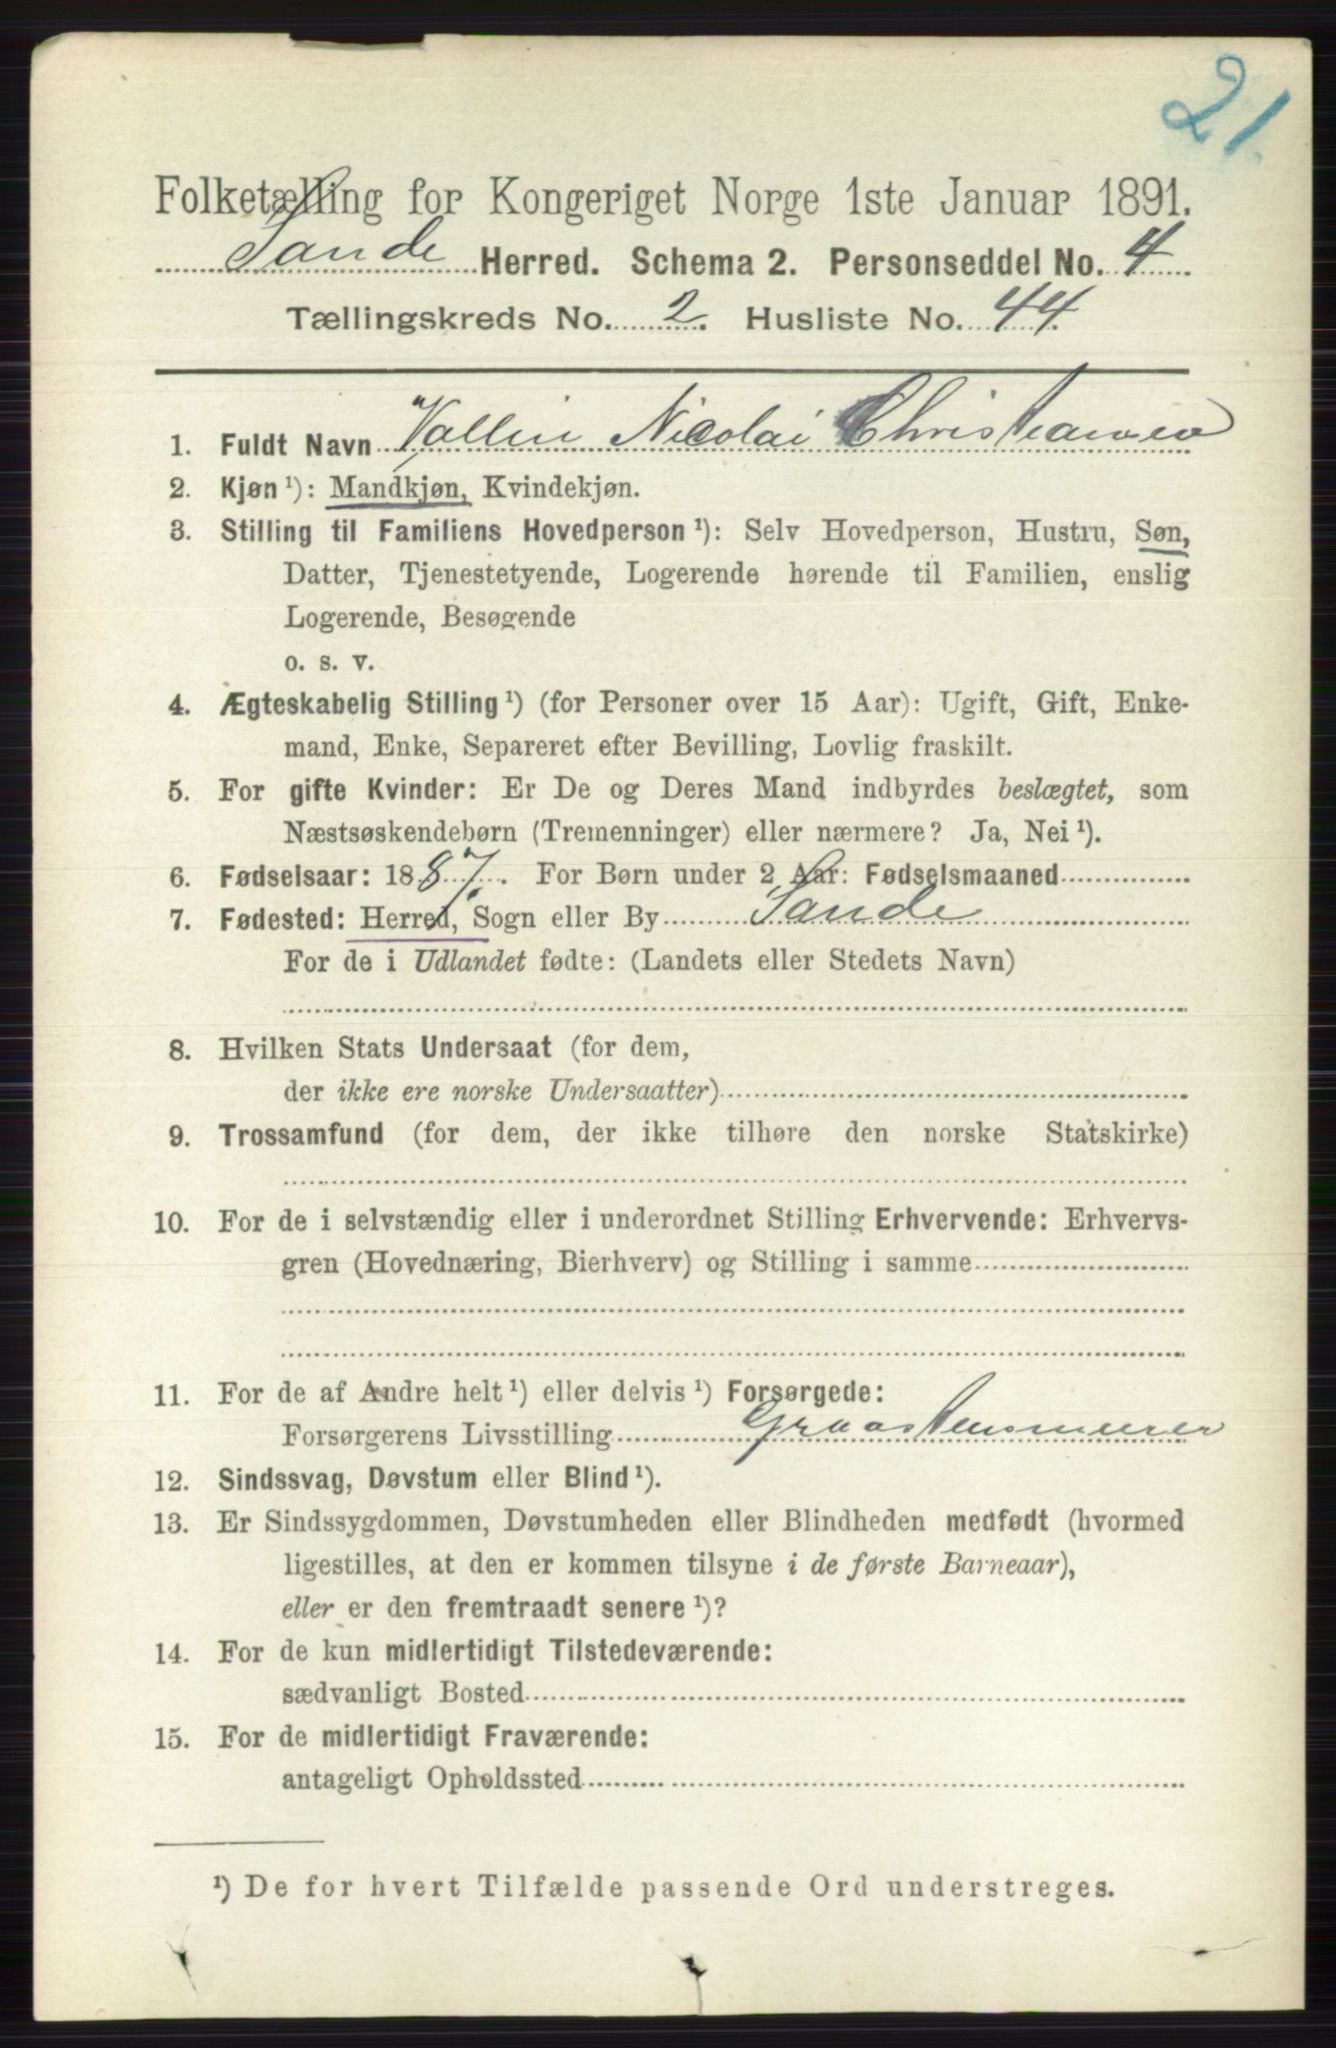 21
Folketælling for Kongeriget Norge 1ste Januar 1891.
Sande Herred. Schema 2. Personseddel No. 4
Tællingskreds No. 2. Husliste No. 44.
1. Fuldt Navn Vallin Nicolai Christiansen
2. Kjøn ¹): Mandkjøn, Kvindekjøn.
3. Stilling til Familiens Hovedperson ¹): Selv Hovedperson, Hustru, Søn,
Datter, Tjenestetyende, Logerende hørende til Familien, enslig
Logerende, Besøgende
o. s. v.
4. Ægteskabelig Stilling ¹) (for Personer over 15 Aar): Ugift, Gift, Enke-
mand, Enke, Separeret efter Bevilling, Lovlig fraskilt.
5. For gifte Kvinder: Er De og Deres Mand indbyrdes beslægtet, som
Næstsøskendebørn (Tremenninger) eller nærmere? Ja, Nei ¹).
6. Fødselsaar: 1887. For Børn under 2 Aar: Fødselsmaaned
7. Fødested: Herred, Sogn eller By Sande
For de i Udlandet fødte: (Landets eller Stedets Navn)
8. Hvilken Stats Undersaat (for dem,
der ikke ere norske Undersaatter)
9. Trossamfund (for dem, der ikke tilhøre den norske Statskirke)
10. For de i selvstændig eller i underordnet Stilling Erhvervende: Erhvervs-
gren (Hovednæring, Bierhverv) og Stilling i samme
11. For de af Andre helt ¹) eller delvis ¹) Forsørgede:
Forsørgerens Livsstilling Graastensmurer
12. Sindssvag, Døvstum eller Blind ¹).
13. Er Sindssygdommen, Døvstumheden eller Blindheden medfødt (hvormed
ligestilles, at den er kommen tilsyne i de første Barneaar),
eller er den fremtraadt senere ¹)?
14. For de kun midlertidigt Tilstedeværende:
sædvanligt Bosted
15. For de midlertidigt Fraværende:
antageligt Opholdssted
¹) De for hvert Tilfælde passende Ord understreges.